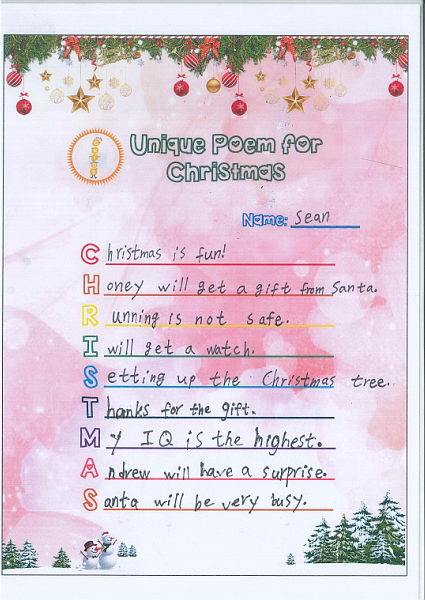 Unique Poem for
Christmas
Name: Sean
Christmas is fun!
Honey will get a gift from Santa.
Running is not safe.
I will get a watch.
Setting up the Christmas tree.
Thanks for the gift.
My IQ is the highest.
Andrew will have a surprise.
Santa will be very busy.